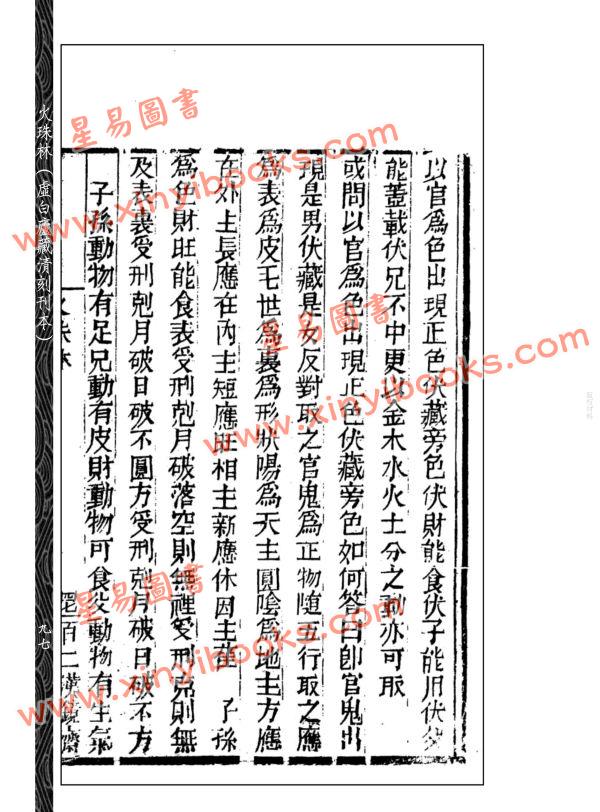 以官爲色出現正色伏藏旁色伏財能食伏子能用伏父
能蓋載伏兄不中更以金木水火土分之動亦可取
或問以官爲色出現正色伏藏旁色如何答曰卽官鬼出
現是男伏藏是女反對取之官鬼爲正物随五行取之應
爲表爲皮毛世爲裏爲形狀陽爲天主圓陰爲地主方應
在外主長應在內主短應旺相主新應休囚主舊 子孫
爲色財旺能食表受刑剋月破落空則無裡受刑克則無
及表裏受刑剋月破日破不圓方受刑剋月破日破不方
子孫動物有足兄動有皮財動物可食父動物有生氣
火珠林
百二漢鏡齋
火珠林（虛白齋藏清刻刊本）
九七
星易圖書
www.xinyibooks.com
星易圖書
www.xinyibooks.com
星易圖書
www.xinyibooks.com